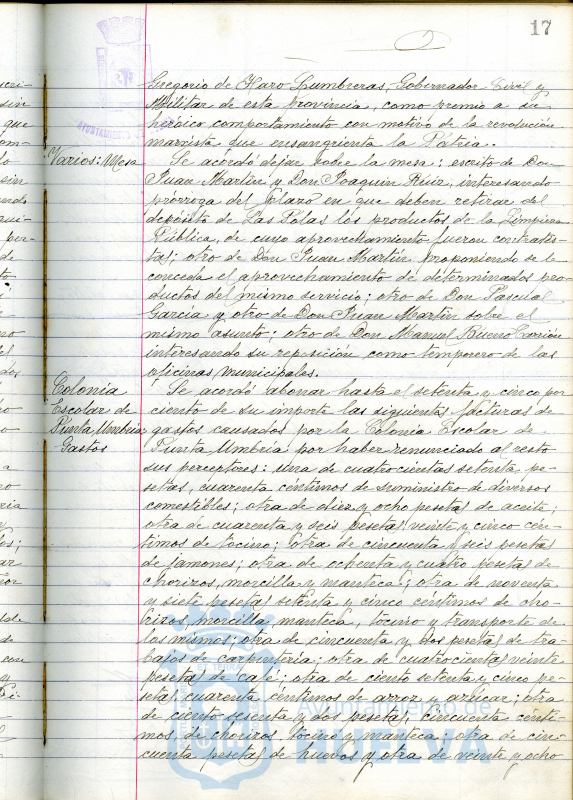 17
Gregorio de Haro Lumbreras, Gobernador Civil y
Militar de esta provincia, como premio a su
heróico comportamiento con motivo de la revolución
marxista que ensangrienta la Patria.
Varios: Mesa
Se acordó dejar sobre la mesa: escrito de Don
Juan Martín y Don Joaquín Ruiz, interesando
prórroga del plazo en que deben retirar del
depósito de Las Polas los productos de la Limpieza
Pública, de cuyo aprovechamiento fueron contratis-
tas; otro de Don Juan Martín proponiendo se le
conceda el aprovechamiento de determinados pro-
ductos del mismo servicio; otro de Don Pascual
García y otro de Don Juan Martín sobre el
mismo asunto; otro de Don Manuel Bueno Carrión
interesando su reposición como temporero de las
oficinas municipales.
Colonia
Escolar de
Punta Umbría
Gastos
Se acordó abonar hasta el setenta y cinco por
ciento de su importe las siguientes facturas de
gastos causados por la Colonia Escolar de
Punta Umbría por haber renunciado al resto
sus perceptores: una de cuatrocientas setenta pe-
setas, cuarenta céntimos de suministro de diversos
comestibles; otra de diez y ocho pesetas de aceite;
otra de cuarenta y seis pesetas veinte y cinco cén-
timos de tocino; otra de cincuenta y seis pesetas
de jamones; otra de ochenta y cuatro pesetas de
chorizos, morcilla y manteca; otra de noventa
y siete pesetas setenta y cinco céntimos de cho-
rizos, morcilla manteca, tocino y transporte de
los mismos; otra de cincuenta y dos pesetas de tra-
bajos de carpintería; otra de cuatrocientas veinte
pesetas de café; otra de ciento setenta y cinco pe-
setas cuarenta céntimos de arroz y azúcar; otra
de ciento sesenta y dos pesetas, cincuenta cénti-
mos, de chorizos tocino y manteca; otra de cin-
cuenta pesetas de huevos y otra de veinte y ocho
Ayuntamiento de
HUELVA